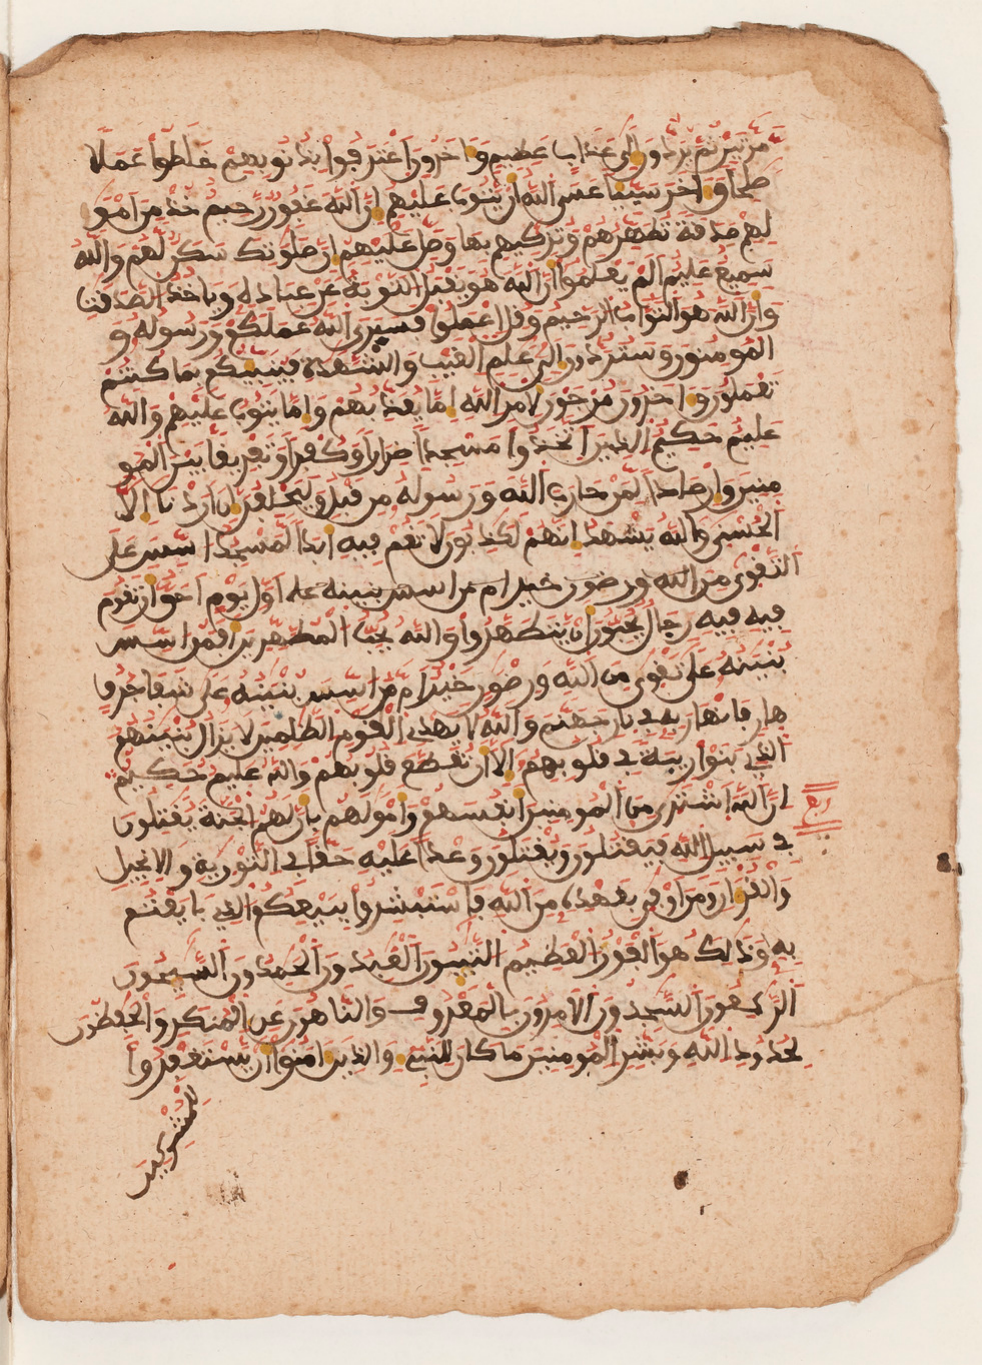 مرتين ثم يردون إلى عذاب عظيم وءاخرون اعترفوا بذنوبهم خلطوا عملا
صلحا وءاخر سيئا عسى الله أن يتوب عليهم إن الله غفور رحيم خذ من امو
لهم صدقة تطهرهم وتزكيهم بها وصل عليهم إن صلوتك سكن لهم والله
سميع عليم الم يعلموا أن الله هو يقبل التوبة عن عباده وياخذ الصدقت
وأن الله هو التواب الرحيم وقل اعملوا فسيرى الله عملكم ورسوله و
المومنون وستردون إلى علم الغيب والشهدة فينبيكم بما كنتم
تعملون وءاخرون مرجون لامر الله إما يعذبهم وإما يتوب عليهم والله
عليم حكيم الذين اتخذوا مسجدا ضرارا وكفرا وتفريقا بين المو
منين وإرصادا لمن حارب الله ورسوله من قبل وليحلفن إن اردنا إلا
الحسنى والله يشهد إنهم لكذبون لا تقم فيه ابدا لمسجد اسس على
التقوى من الله ورضون خير ام من اسس بنينه على اول يوم احق أن تقوم
فيه فيه رجال يحبون أن يتطهروا والله يحب المطهرين افمن اسس
بنينه على تقوى من الله ورضون خير ام من اسس بنينه على شفا جرف
هار فانهار به في نار جهنم والله لا يهدي القوم الظلمين لا يزال بنينهم
الذي بنوا ريبة في قلوبهم إلا أن تقطع قلوبهم والله عليم حكيم
إن الله اشترى من المومنين أنفسهم وأمولهم بأن لهم الجنة يقتلون
في سبيل الله فيقتلون ويقتلون وعدا عليه حقا في التورية والانجيل
والقرءان ومن اوفى بعهده من الله فاستبشروا ببيعكم الذي بايعتم
به وذلك هو الفوز العظيم التيبون العبدون الحمدون السيحون
الركعون السجدون الامرون بالمعروف والناهون عن المنكر والحفظون
لحدود الله وبشر المومنين ما كان للنبي والذين ءامنوا أن يستغفروا
للمشركين